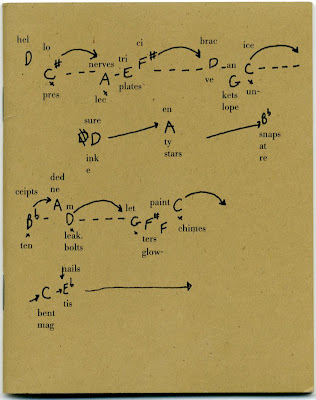 hel lo ci brac ice
D nerves tri F# D an
C# A E plates ve G C
pres lec kets un-
lope
sure en
D A B♭
ink ty snaps
e stars at
re
ceipts ded
ne let paint C
B♭ A m G F# F
D
ten leak. ters chimes
bolts glow-
nails
C E♭
bent tis
mag